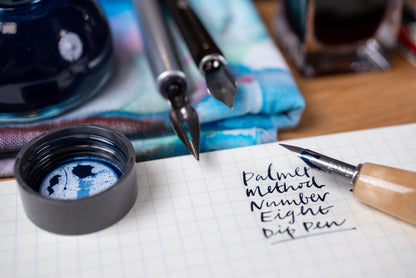 Palmer
Method
Number
Eight
Dip Pen